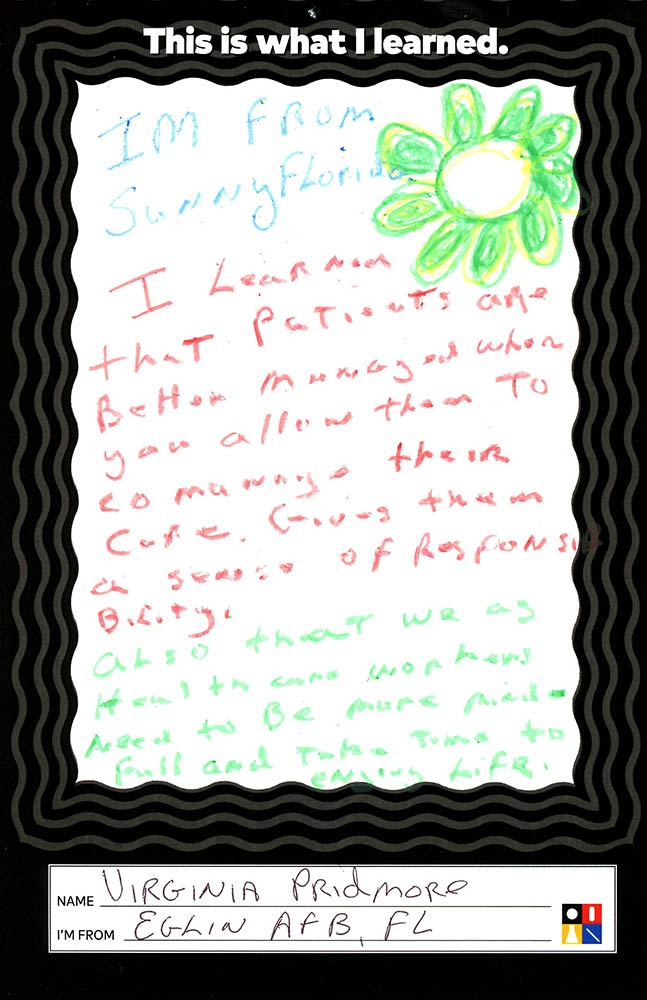 This is what I learned.
IM FROM
Sunny Florida.
I Learned
that Patients are
Better Managed when
you allow them To
co manage their
Care. Gives them
a sense of Responsi
Bility.
Also that we as
Health care workers
Need to Be more mind-
full and Take Time to
enjoy Life.
NAME VIRGINIA PRIDMORE
I'M FROM EGLIN AFB, FL